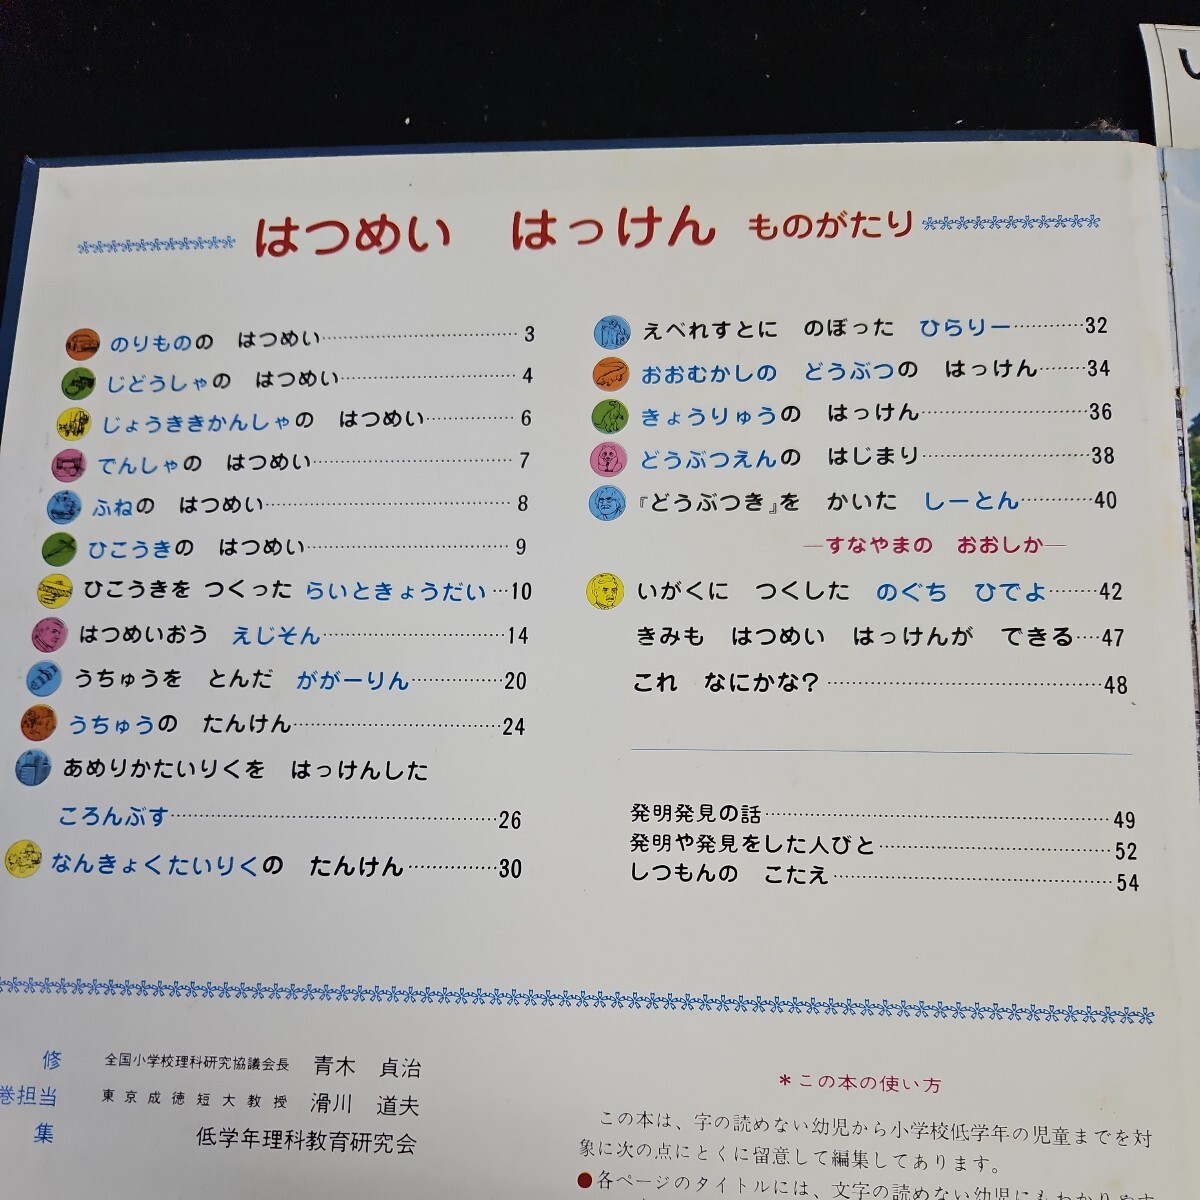 はつめい はっけん ものがたり
のりものの はつめい 3
じどうしゃの はつめい 4
じょうききかんしゃの はつめい 6
でんしゃの はつめい 7
ふねの はつめい 8
ひこうきの はつめい 9
ひこうきを つくった らいときょうだい 10
はつめいおう えじそん 14
うちゅうを とんだ ががーりん 20
うちゅうの たんけん 24
あめりかたいりくを はっけんした
ころんぶす 26
なんきょくたいりくの たんけん 30
えべれすとに のぼった ひらりー 32
おおむかしの どうぶつの はっけん 34
きょうりゅうの はっけん 36
どうぶつえんの はじまり 38
『どうぶつき』を かいた しーとん 40
―すなやまの おおしか―
いがくに つくした のぐち ひでよ 42
きみも はつめい はっけんが できる 47
これ なにかな? 48
発明発見の話 49
発明や発見をした人びと 52
しつもんの こたえ 54
修 全国小学校理科研究協議会長 青木 貞治
巻担当 東京成徳短大教授 滑川 道夫
集 低学年理科教育研究会
＊この本の使い方
この本は、字の読めない幼児から小学校低学年の児童までを対
象に次の点にとくに留意して編集してあります。
●各ページのタイトルには、文字の読めない幼児にもわかりやす